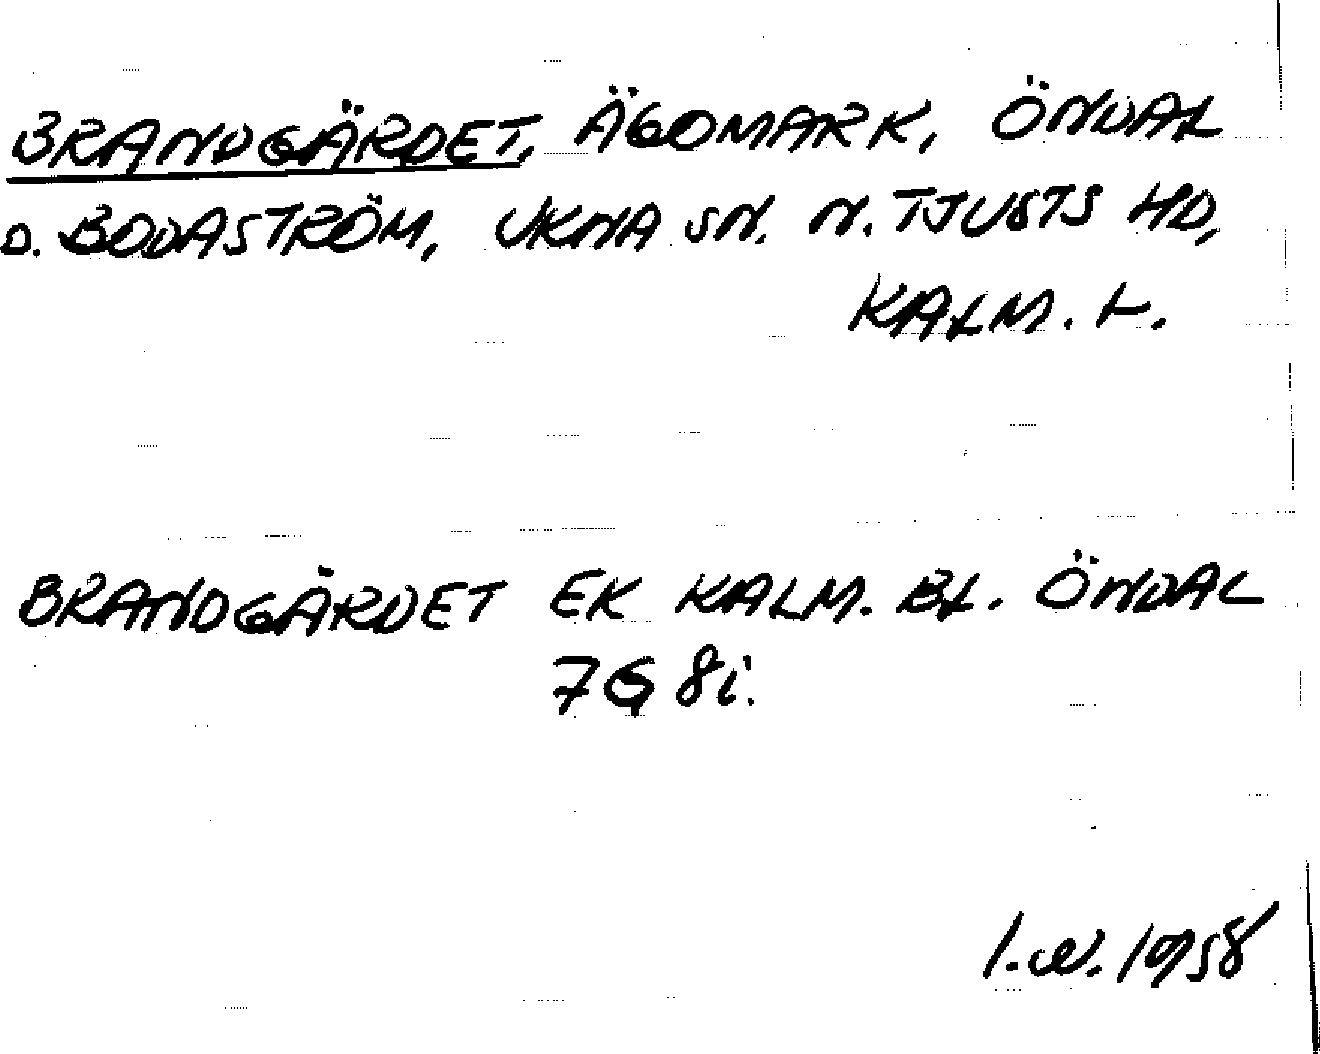 BRANDGÄRDET, ÄGOMARK, ÖNDAL
O. BODASTRÖM, UKNA SN. N. TJUSTS HD,
KALM. L.
BRANDGÄRDET EK KALM. BL. ÖNDAL
7G 8i.
1958